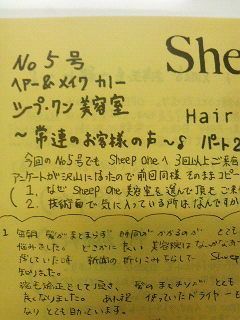 No5号
Shee
ヘアー&メイク カレー
シープ・ワン 美容室
Hair
〜常連のお客様の声〜8 パート2
今回の No5号でも Sheep Oneへ 3回以上ご来店
アンケートが沢山になったので前回同様 そのままコピー
1. なぜ Sheep One 美容室を選んで頂も ご来
2. 技術面で気に入っている所はなんですか
1 毎朝 髪がまとまらず 時間がかかるのが とても
悩みでした。どこかに良い 美容院はないかなか
探していた時 新聞の折りこみちらしで Shee
知りました。
縮毛矯正として頂き、髪のまとまりが とても
良くなりました。 あれ程 使っていたドライヤーも
なり とても助かっています。